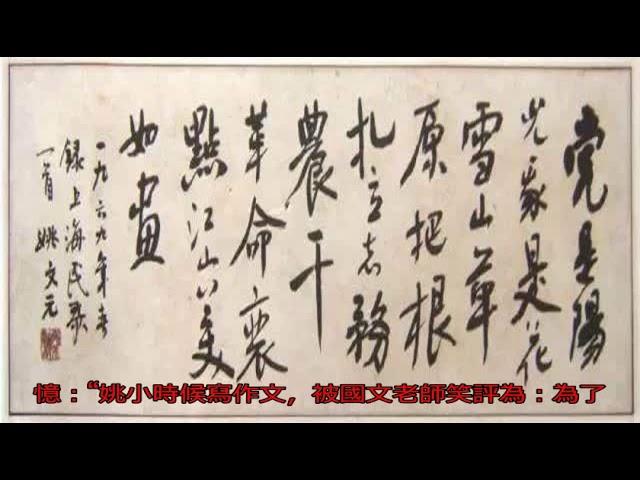 党是陽
光我是花
雪山草
原把根
扎立志務
農干
革命裝
點江山美
如畫
一九六九年春
錄上海民歌
一首 姚文元
憶：“姚小時候寫作文，被國文老師笑評為：為了